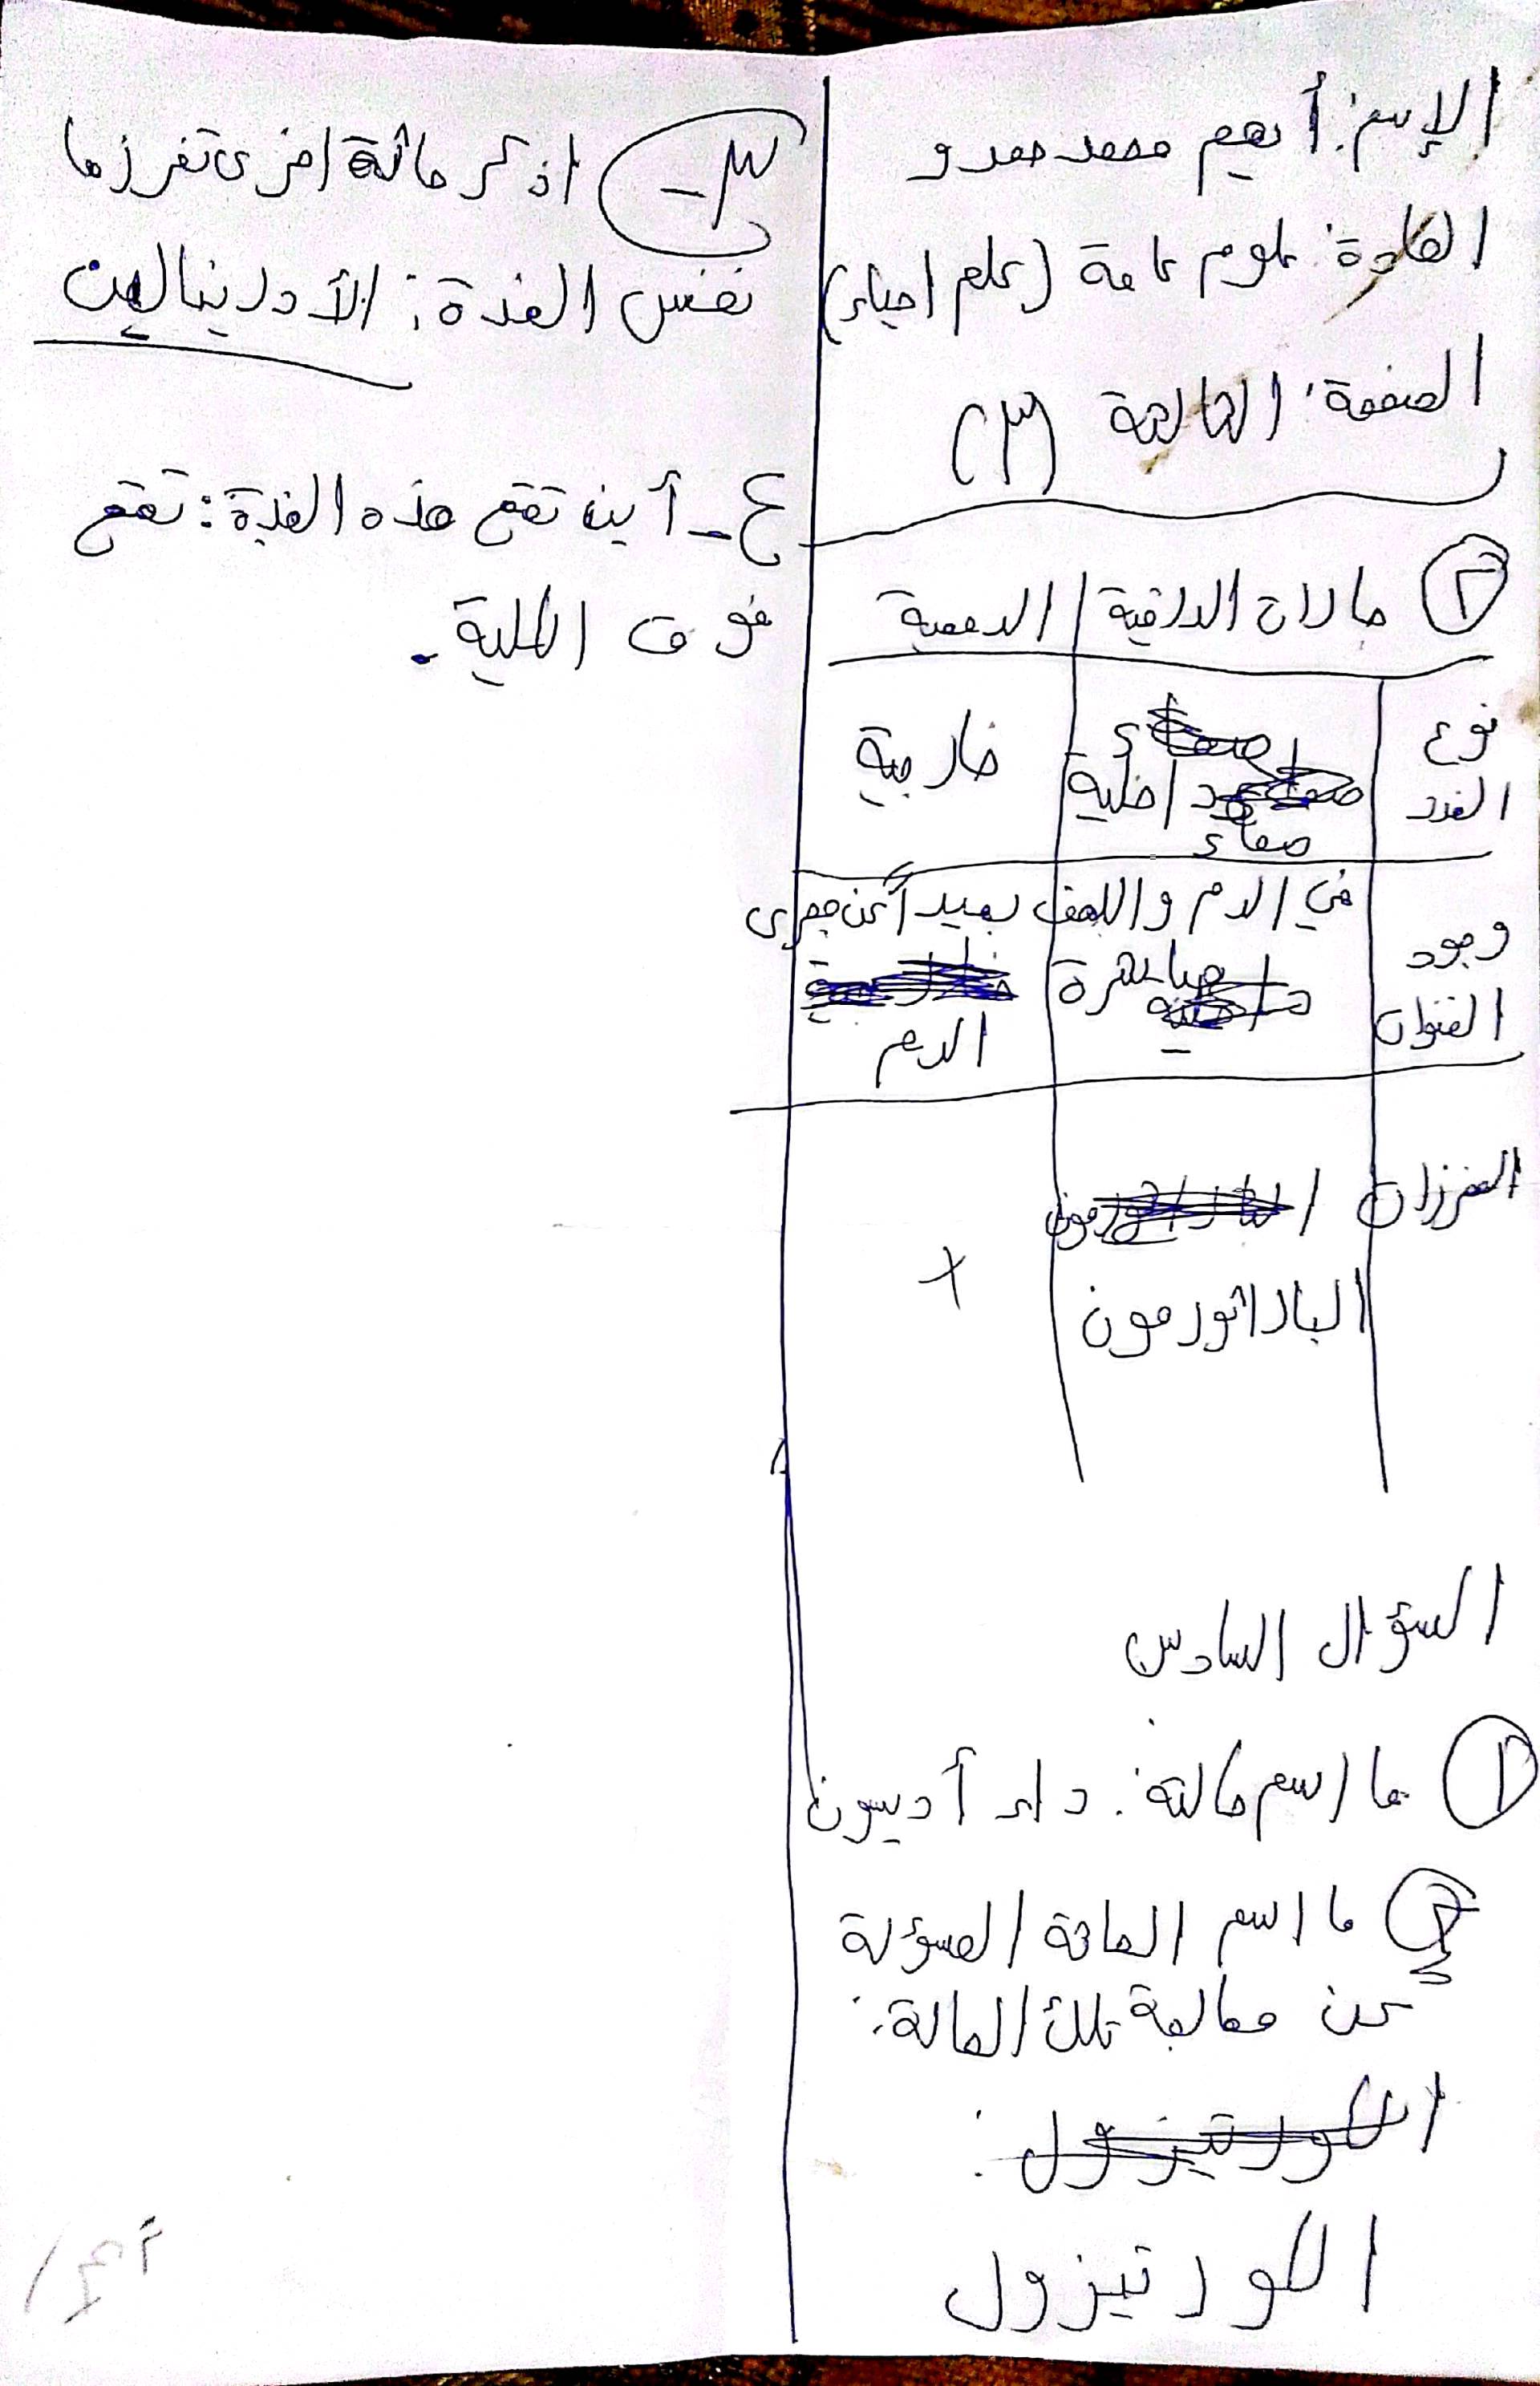 الإسم: أيهم محمد حمدو
المادة: علوم عامة (علم احياء)
الصفحة: الثالثة (٣)
٢ حالات الدرقية الدمعية
نوع الغدد
صماء داخلية
خارجية
وجود القنوات
في الدم واللمف مباشرة
بعيداً عن مجرى الدم
المفرزات
الباراثورمون
x
السؤال السادس
١ ما اسم حالته: داء أديسون
٢ ما اسم المادة المسؤلة
عن معالجة تلك الحالة:
الكورتيزول:
الكورتيزول
٣- اذكر مادة اخرى تفرزها
نفس الغدة: الأدرينالين
٤- أين تقع هذه الغدة: تقع
فوق الكلية.